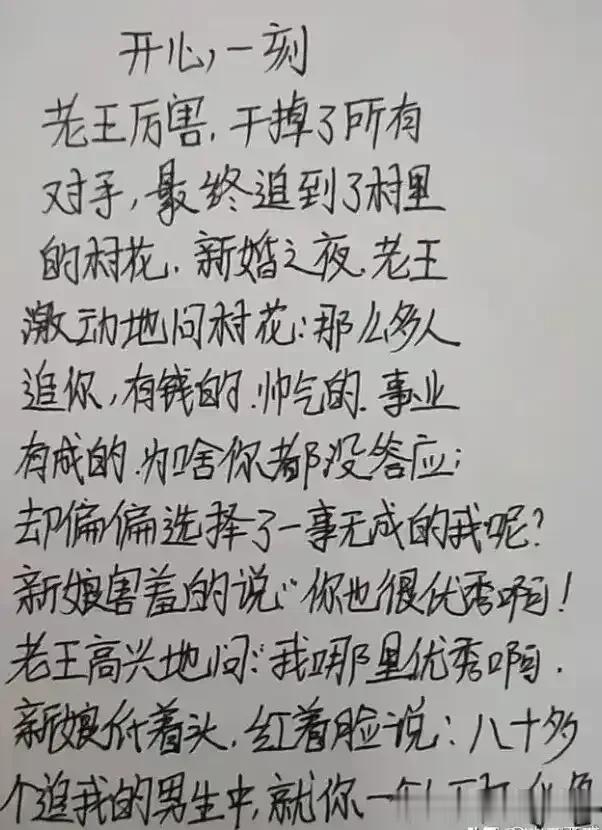 开心一刻
老王厉害,干掉了所有
对手,最终追到了村里
的村花.新婚之夜.老王
激动地问村花:那么多人
追你,有钱的.帅气的.事业
有成的.为啥你都没答应;
却偏偏选择了一事无成的我呢?
新娘害羞的说:“你也很优秀啊!
老王高兴地问:“我哪里优秀啊.
新娘低着头,红着脸说:八十多
个追我的男生中,就你一个